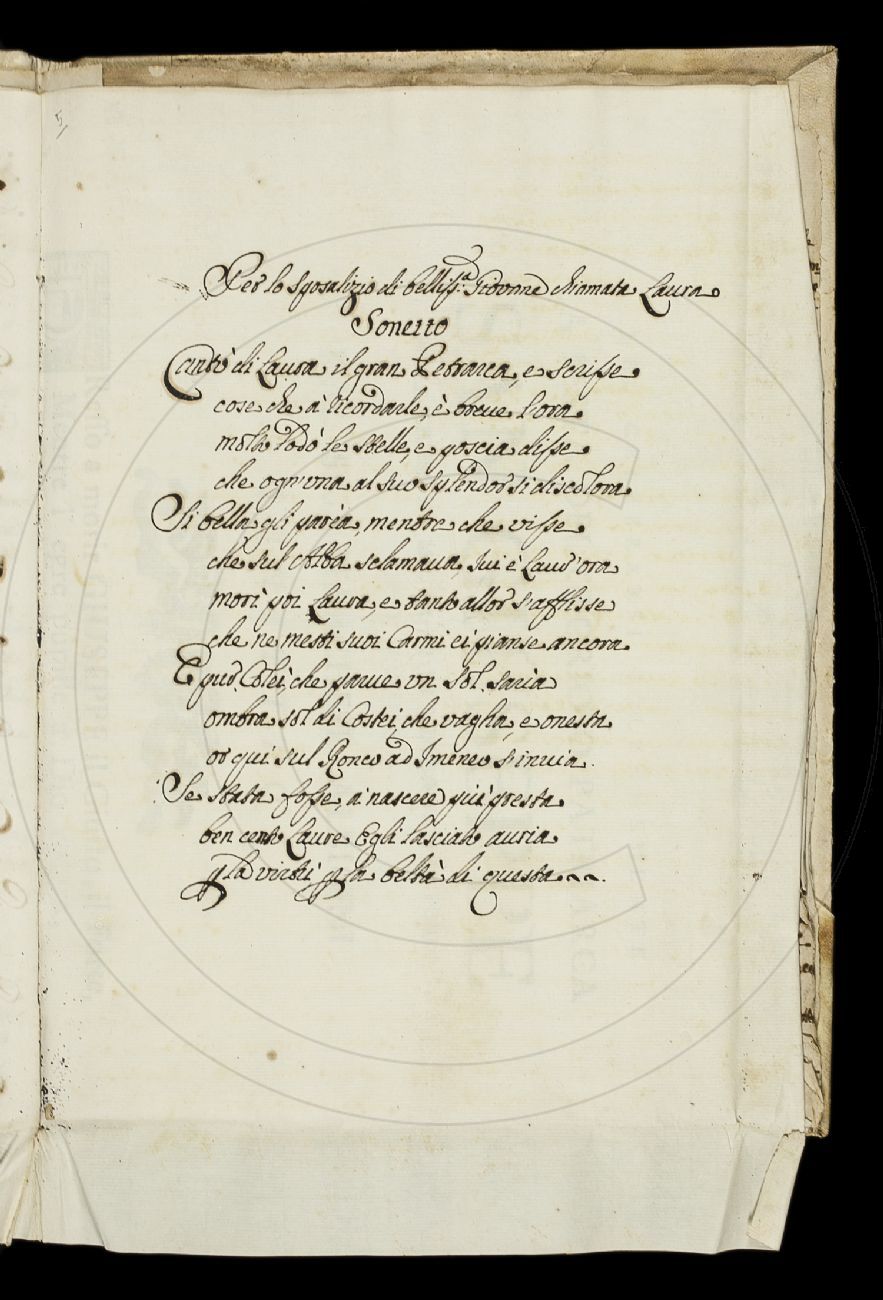 5
Per lo Sposalizio di bellis.ª Giovane chiamata Laura
Sonetto
Cantò di Laura il gran Petrarca, e scrisse
cose che à ricordarle, è breue l'ora
molto lodò le stelle, e poscia disse
che ogn'vna al suo splendor si discolora
Si bella gli parìa, mentre che visse
che sul Alba sclamaua, iui è Laur'ora
morì poi Laura, e tanto allor s'afflisse
che ne mesti suoi Carmi ei pianse ancora
E pur Colei, che parue vn sol sarìa
ombra sol di Costei, che vagha, e onesta
or quì sul Ronco ad Imeneo s'inuia.
Se stata fosse, à nascere più presta
ben cento Laure Egli lasciato auria
p la virtù p la beltà di questa